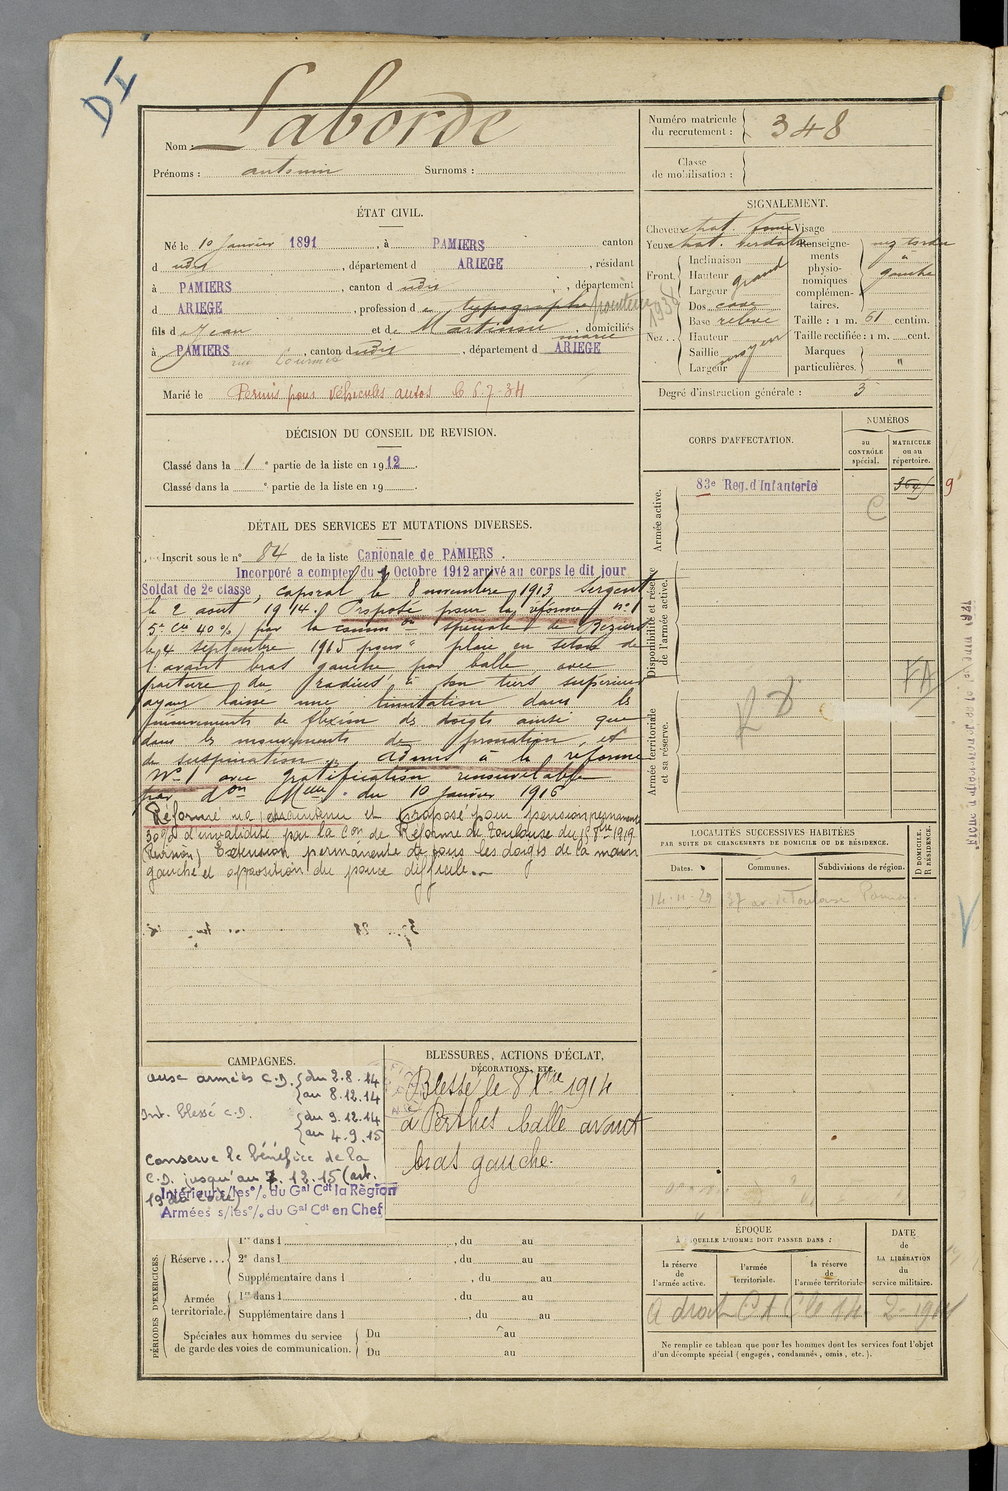 DI
Nom : Laborde
Prénoms : antonin Surnoms :
Numéro matricule du recrutement : 348
Classe de mobilisation :
ÉTAT CIVIL.
Né le 10 Janvier 1891, à PAMIERS canton
d udit, département d ARIEGE, résidant
à PAMIERS, canton d udit, département
d ARIEGE, profession de typographe
fils de Jean et de Martinie, domiciliés
à PAMIERS, canton dudit, département d ARIEGE
Marié le Permis pour véhicules autos le 6.7.34
SIGNALEMENT.
Cheveux chat. foncé Visage
Yeux chat. verdatre Renseignements physionomiques complémentaires.
nez tordu
à gauche
Front. Inclinaison
Hauteur grand
Largeur
Nez... Dos cave
Base relevé
Hauteur
Saillie moyen
Largeur
Taille : 1 m. 61 centim.
Taille rectifiée : 1 m. cent.
Marques particulières. "
Degré d'instruction générale : 3
DÉCISION DU CONSEIL DE REVISION.
Classé dans la 1e partie de la liste en 1912.
Classé dans la e partie de la liste en 19
DÉTAIL DES SERVICES ET MUTATIONS DIVERSES.
Inscrit sous le n° 84 de la liste Cantonale de PAMIERS.
Incorporé a compter du 1 Octobre 1912 arrivé au corps le dit jour
Soldat de 2e classe, caporal le 8 novembre 1913 Sergent
le 2 aout 1914. Proposé pour la réforme n° 1
(5e ce 40%) par la comm on spéciale de Béziers
le 4 septembre 1915 pour " plaie en seton de
l'avant bras gauche par balle avec
fracture du radius à son tiers supérieur
ayant laissé une limitation dans les
mouvements de flexion des doigts ainsi que
dans les mouvements de pronation et
de supination ". Admis à la réforme
N° 1 avec gratification renouvelable
par d on Mlle du 10 Janvier 1916
Réformé n° 1 maintenu et proposé pour pension permanente
30% d'invalidité par la Con de Réforme de Toulouse du 1919
Extension permanente de tous les doigts de la main
gauche et opposition du pouce difficile..
CORPS D'AFFECTATION.
NUMÉROS
au CONTRÔLE spécial.
MATRICULE ou au répertoire.
Armée active.
83e Reg. d'Infanterie
C
9
Disponibilité et réserve de l'armée active.
Armée territoriale et sa réserve.
LOCALITÉS SUCCESSIVES HABITÉES
PAR SUITE DE CHANGEMENTS DE DOMICILE OU DE RÉSIDENCE.
Dates. Communes. Subdivisions de région.
D DOMICILE.
R RÉSIDENCE.
14-11-29 37 av. de Toulouse Pamiers.
CAMPAGNES.
aux armées C.D. du 2.8.14
au 8.12.14
Int. blessé C.D. du 9.12.14
au 4.9.15
Conserve le bénéfice de la
C.D. jusqu'au 7.12.15 (art.
19 du Code)
Intérieur s/les o/. du Gal Cdt la Région
Armées s/les o/. du Gal Cdt en Chef
BLESSURES, ACTIONS D'ÉCLAT,
DÉCORATIONS, ETC.
Blessé le 8 Xbre 1914
à Perthes balle avant
bras gauche.
PÉRIODES D'EXERCICES.
Réserve... 1re dans l , du au
2e dans l , du au
Supplémentaire dans l , du au
Armée territoriale. 1re dans l , du au
Supplémentaire dans l , du au
Spéciales aux hommes du service de garde des voies de communication. Du au
Du au
ÉPOQUE
À LAQUELLE L'HOMME DOIT PASSER DANS :
la réserve de l'armée active.
l'armée territoriale.
la réserve de l'armée territoriale
DATE de LA LIBÉRATION du service militaire.
A droit 2-
Ne remplir ce tableau que pour les hommes dont les services font l'objet
d'un décompte spécial (engagés, condamnés, omis, etc.).